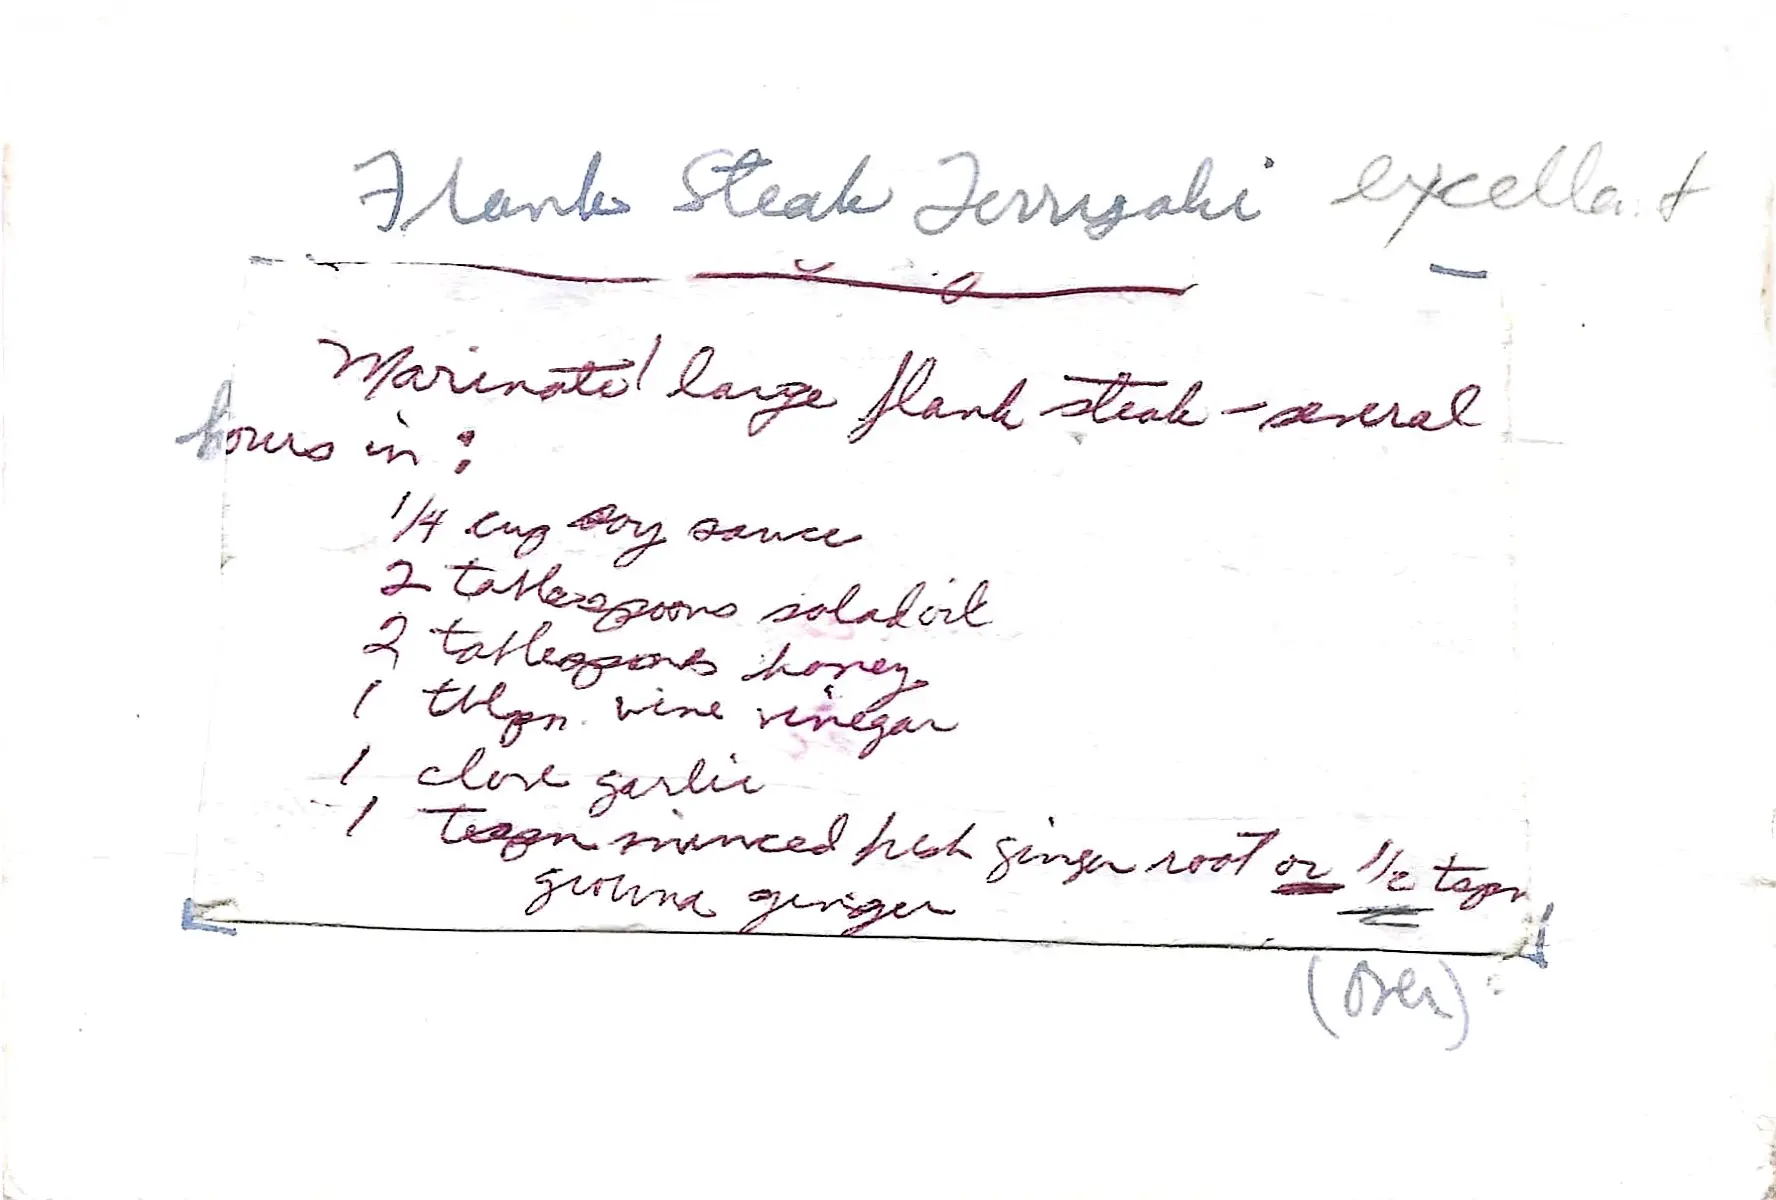 Flank Steak Terryaki excellent
Marinate 1 large flank steak - several
hours in :
1/4 cup soy sauce
2 tablespoons salad oil
2 tablespoons honey
1 tblspn. wine vinegar
1 clove garlic
1 teaspn minced fresh ginger root or 1/2 tspn
ground ginger
(Over)